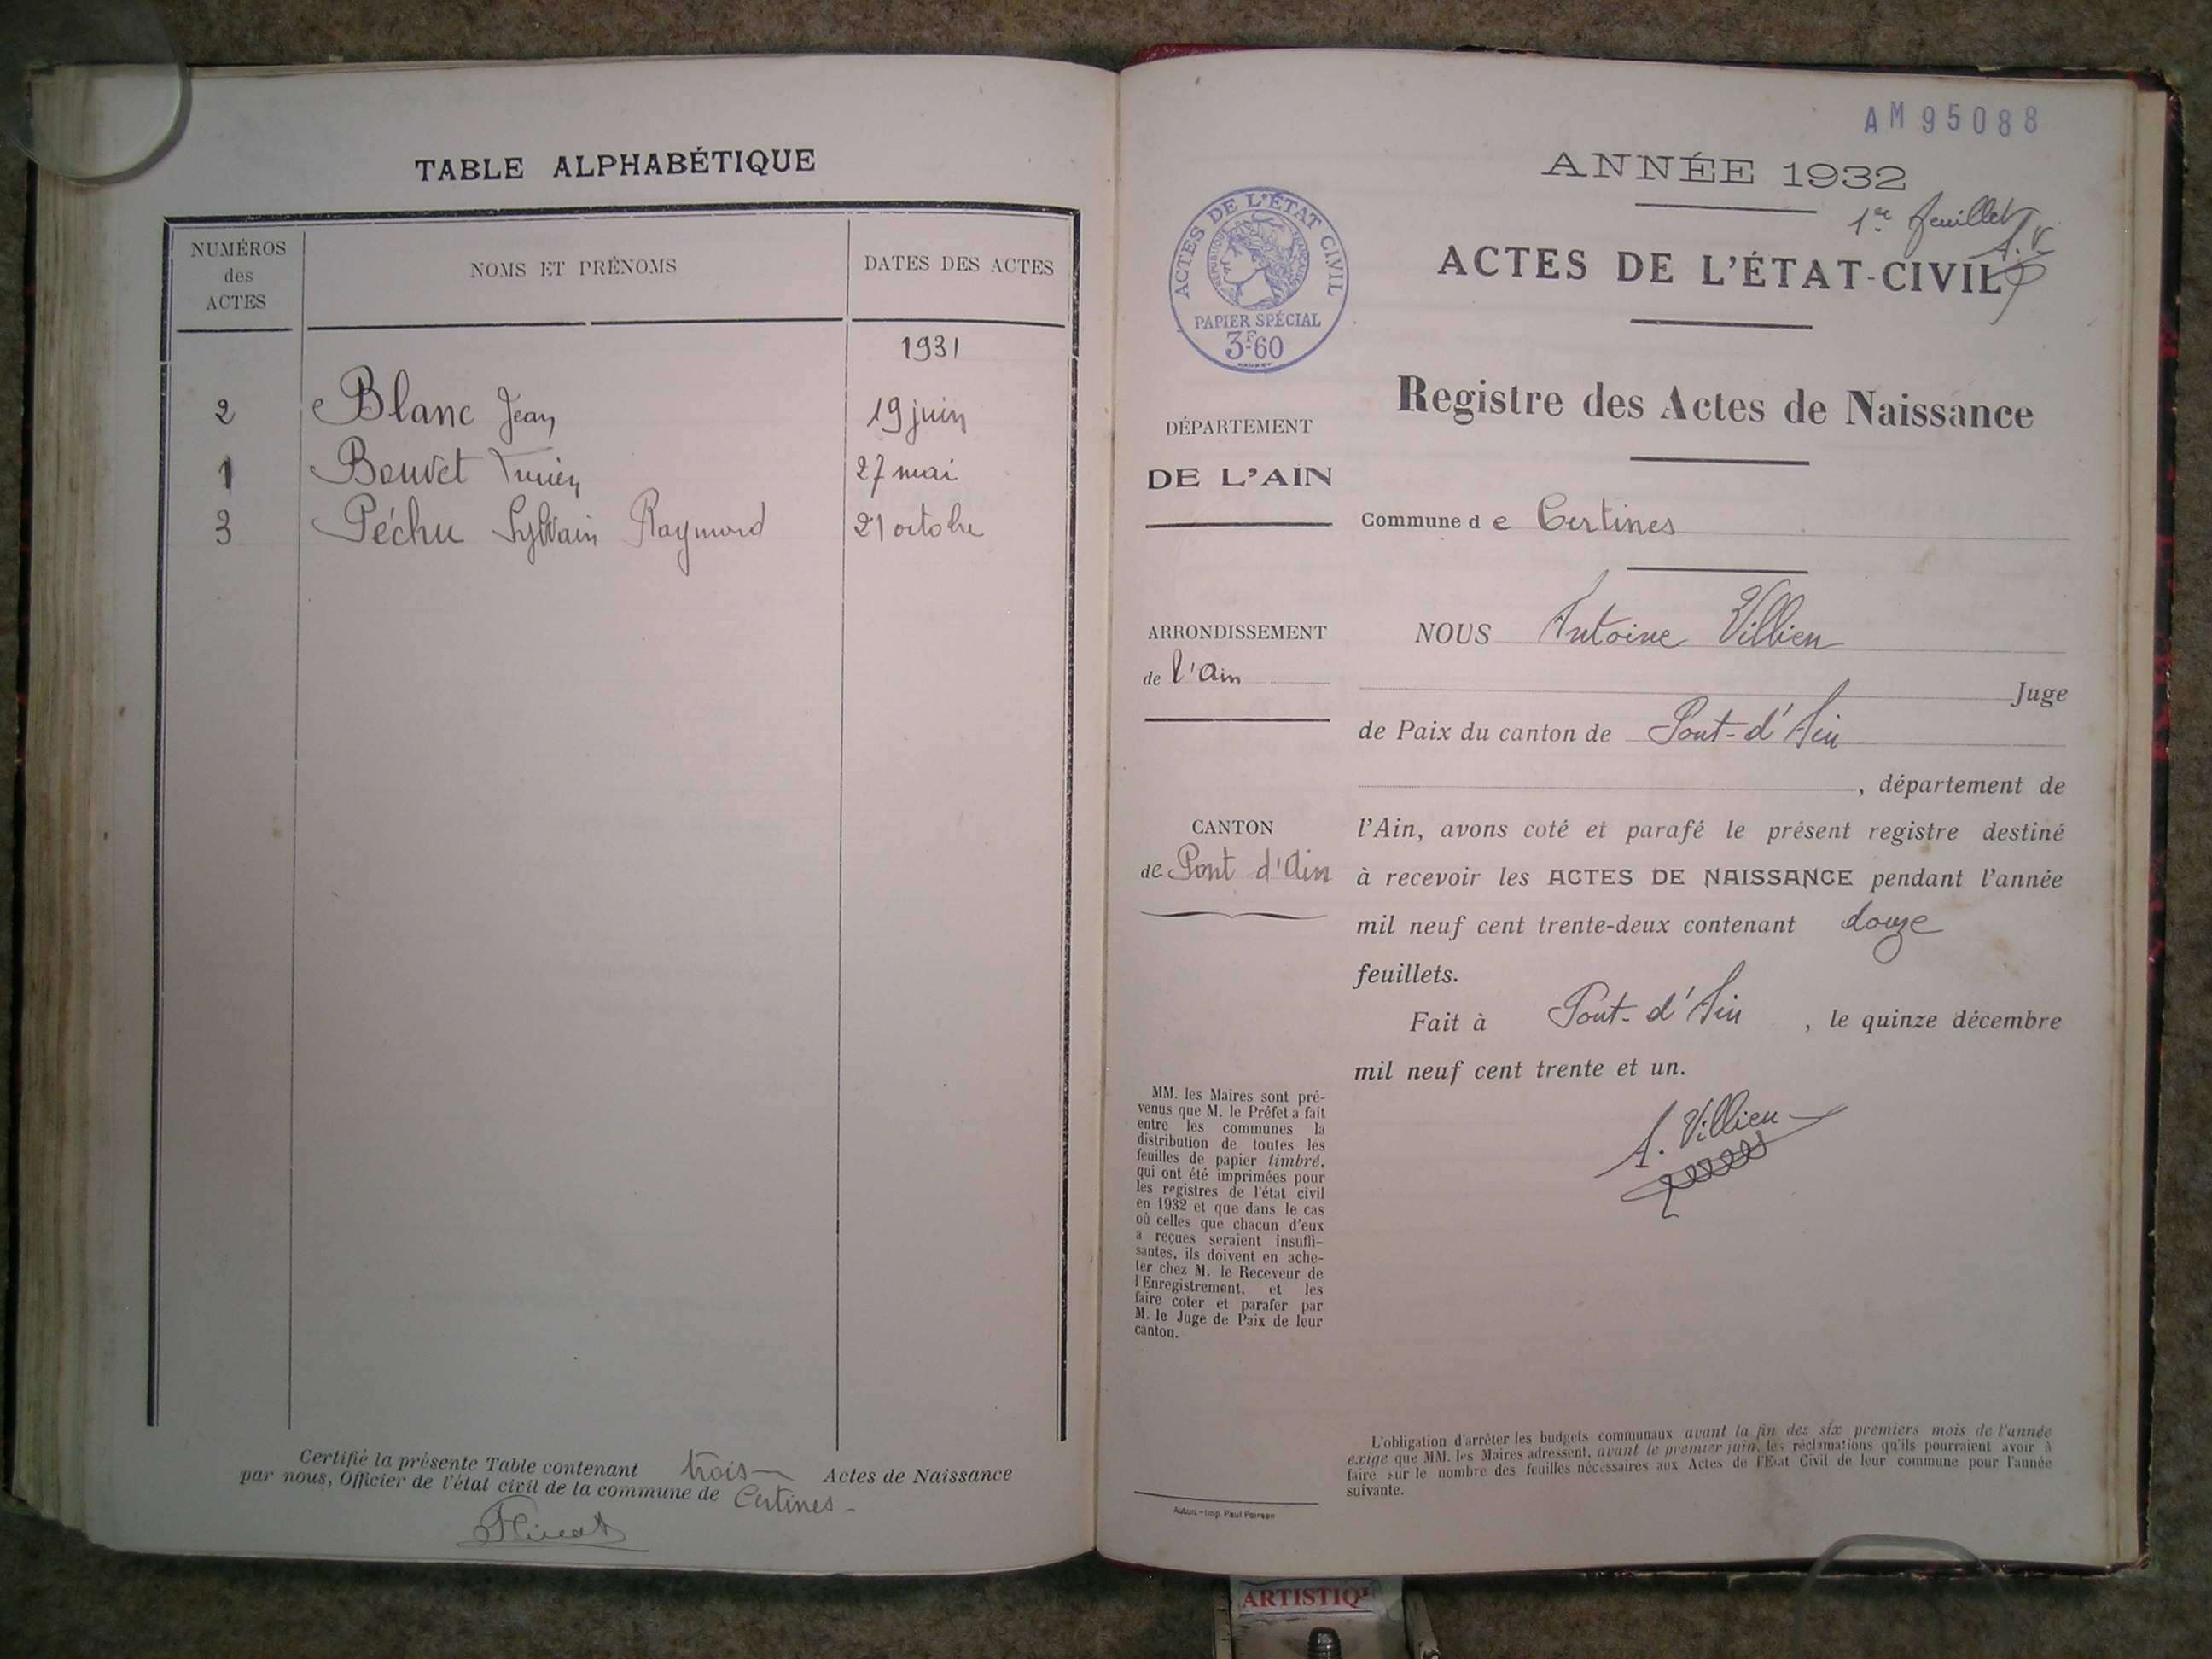 TABLE ALPHABÉTIQUE
NUMÉROS des ACTES
NOMS ET PRÉNOMS
DATES DES ACTES
1931
2 Blanc Jean 19 juin
1 Bouvet 27 mai
3 Péchu Sylvain Raymond 21 octobre
Certifié la présente Table contenant trois Actes de Naissance
par nous, Officier de l'état civil de la commune de Certines
AM 95088
ANNÉE 1932
1er feuillet
A. V
ACTES DE L'ÉTAT-CIVIL
ACTES DE L'ÉTAT CIVIL
RÉPUBLIQUE FRANÇAISE
PAPIER SPÉCIAL
3F60
Registre des Actes de Naissance
DÉPARTEMENT
DE L'AIN
Commune de Certines
ARRONDISSEMENT
de l'Ain
NOUS Antoine Villien
Juge
de Paix du canton de Pont-d'Ain
, département de
CANTON
de Pont d'Ain
l'Ain, avons coté et parafé le présent registre destiné
à recevoir les ACTES DE NAISSANCE pendant l'année
mil neuf cent trente-deux contenant douze
feuillets.
Fait à Pont-d'Ain, le quinze décembre
mil neuf cent trente et un.
A. Villien
MM. les Maires sont pré-
venus que M. le Préfet a fait
entre les communes la
distribution de toutes les
feuilles de papier timbré,
qui ont été imprimées pour
les registres de l'état civil
en 1932 et que dans le cas
où celles que chacun d'eux
a reçues seraient insuffi-
santes, ils doivent en ache-
ter chez M. le Receveur de
l'Enregistrement, et les
faire coter et parafer par
M. le Juge de Paix de leur
canton.
L'obligation d'arrêter les budgets communaux avant la fin des six premiers mois de l'année
exige que MM. les Maires adressent, avant le premier juin, les réclamations qu'ils pourraient avoir à
faire sur le nombre des feuilles nécessaires aux Actes de l'Etat Civil de leur commune pour l'année
suivante.
Imp. Paul
ARTISTIQ